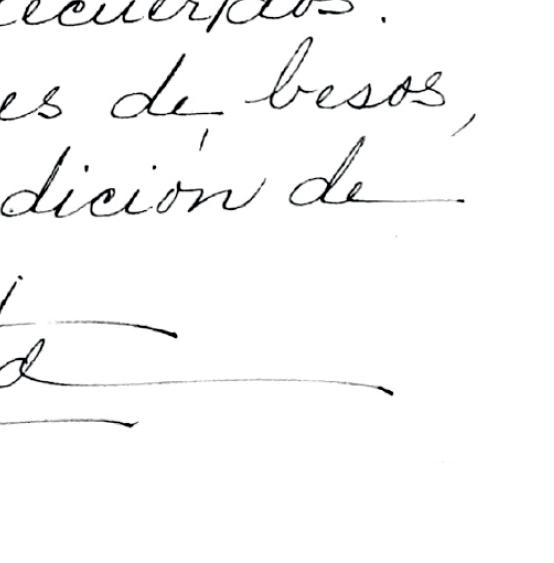 ecuerdos.
es de besos,
dición de